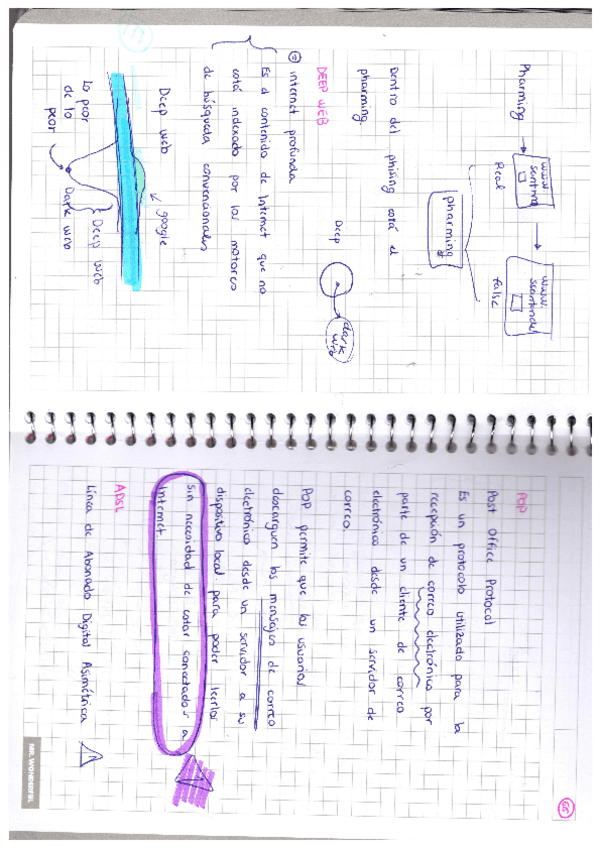 Pharming
www santind
Real
www. ssantinder
false
pharming
Dentro del phising está el
pharming.
DEEP WEB
internet profunda
Es el contenido de Internet que no
está indexado por los motores
de búsqueda convencionales
Deep
dark
web
Deep web
google
Deep web
Dark web
Lo peor
de lo
peor
65
POP
Post Office Protocol
Es un protocolo utilizado para la
recepción de correo electrónico por
parte de un cliente de correo
electrónico desde un servidor de
correo.
POP permite que los usuarios
descarguen los mensajes de correo
electrónico desde un servidor a su
dispositivo local para poder leerlos
sin necesidad de estar conectados a
Internet.
ADSL
Línea de Abonado Digital Asimétrica
MR. WONDERFUL